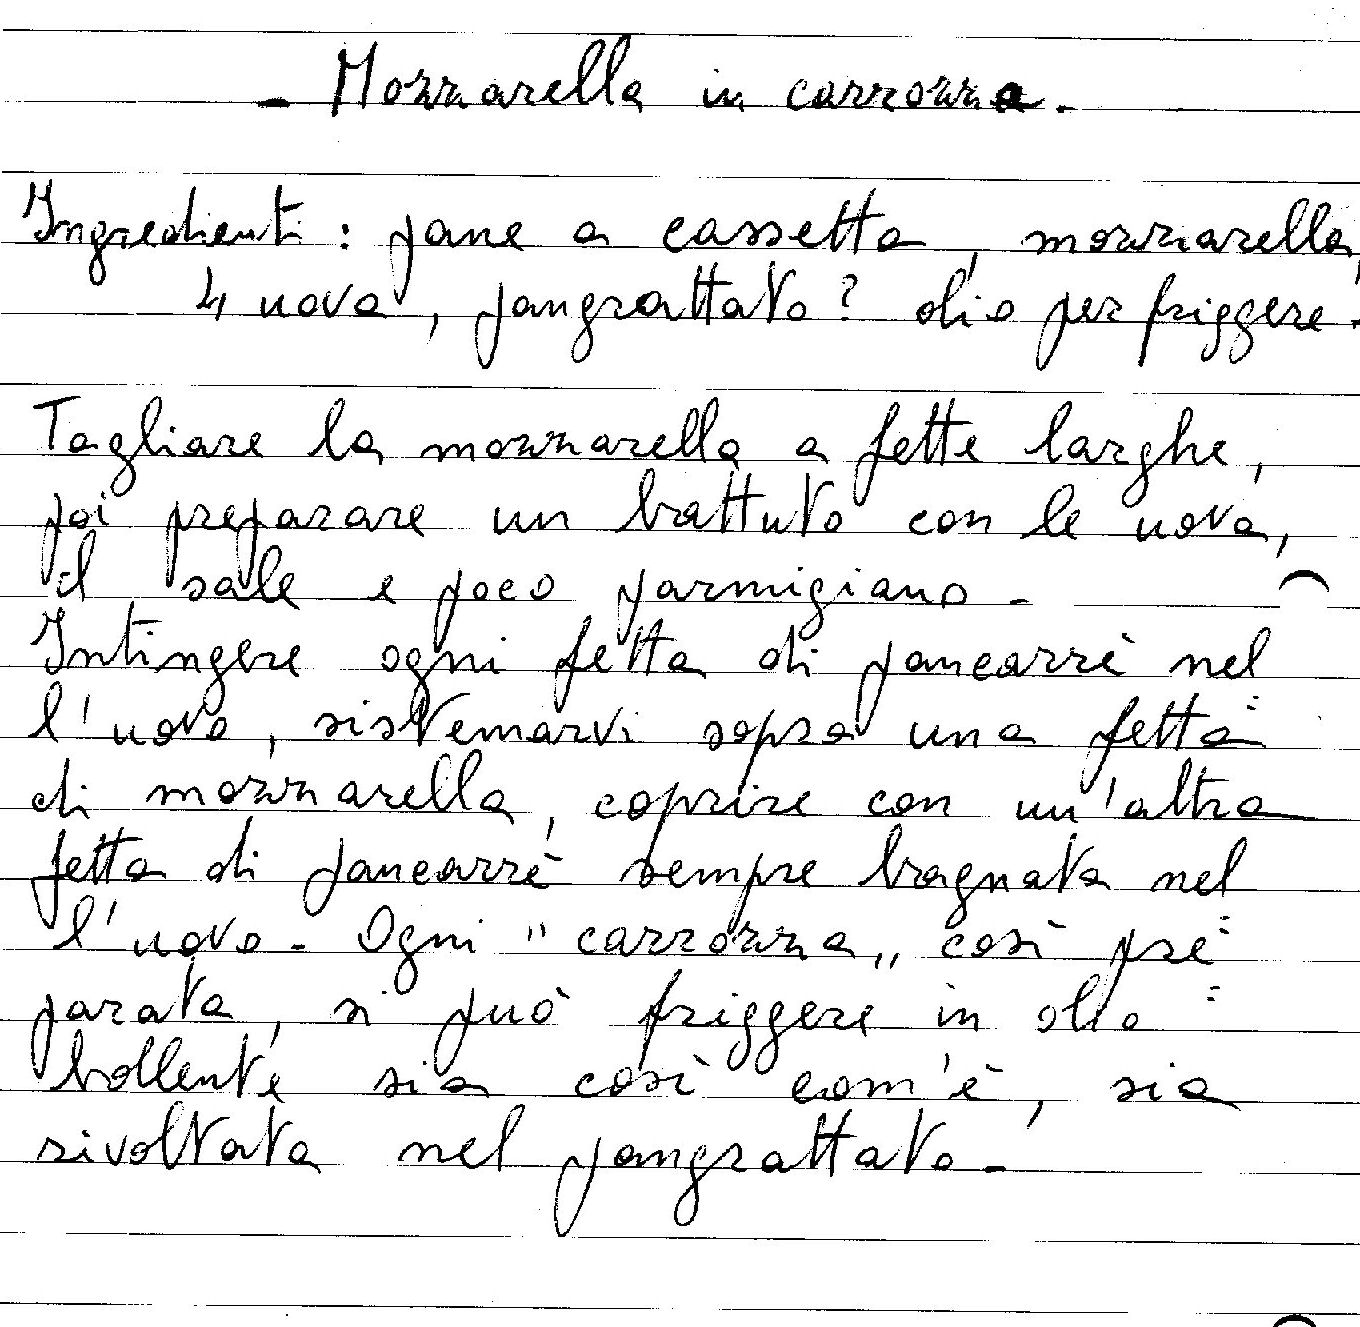 - Mozzarella in carrozza -
Ingredienti : pane a cassetta, mozzarella,
4 uova, pangrattato? olio per friggere.
Tagliare la mozzarella a fette larghe,
poi preparare un battuto con le uova,
il sale e poco parmigiano -
Intingere ogni fetta di pancarrè nel
l'uovo, sistemarvi sopra una fetta
di mozzarella, coprire con un'altra
fetta di pancarrè sempre bagnata nel=
l'uovo - Ogni "carrozza„ così pre=
parata, si può friggere in olio
bollente sia così com'è, sia
rivoltata nel pangrattato -